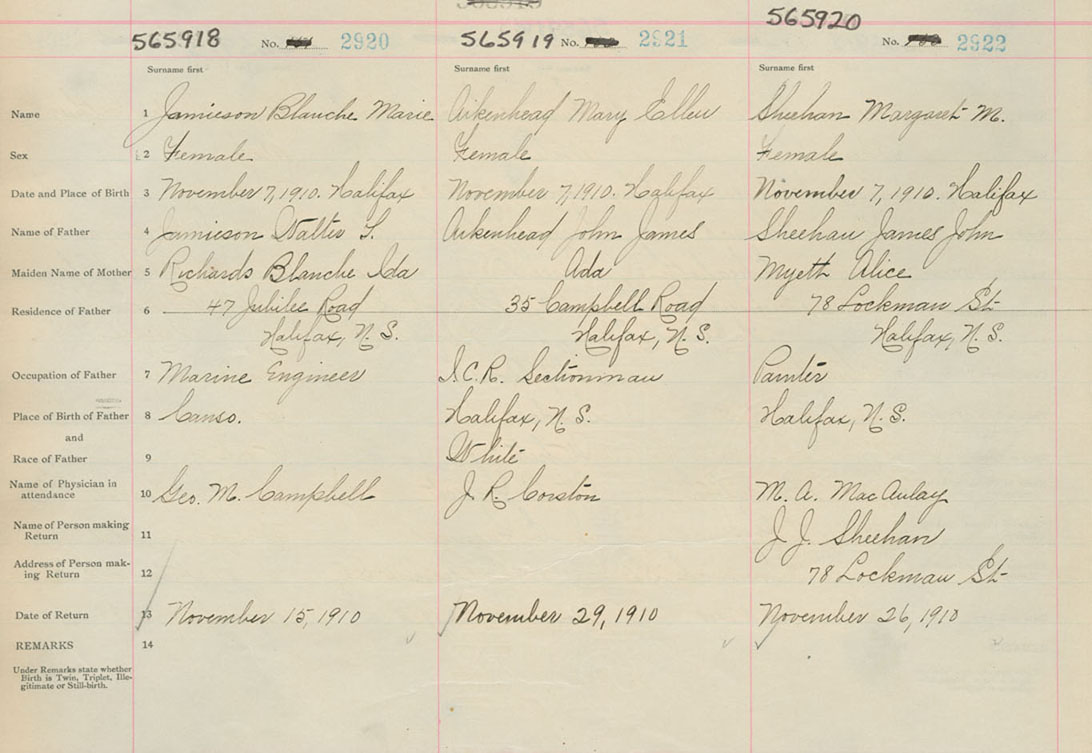 565920
565918 No. 2920 565919 No. 2921 No. 2922
Surname first Surname first Surname first
Name 1 Jamieson Blanche Marie Aikenhead Mary Ellen Sheehan Margaret M.
Sex 2 Female Female Female
Date and Place of Birth 3 November 7, 1910. Halifax November 7, 1910. Halifax November 7, 1910. Halifax
Name of Father 4 Jamieson Walter S. Aikenhead John James Sheehan James John
Maiden Name of Mother 5 Richards Blanche Ida Ada Myeth Alice
Residence of Father 6 47 Jubilee Road 35 Campbell Road 78 Lockman St
Halifax, N.S. Halifax, N.S. Halifax, N.S.
Occupation of Father 7 Marine Engineer I.C.R. Sectionman Painter
Place of Birth of Father 8 Canso. Halifax, N.S. Halifax, N.S.
and
Race of Father 9 White
Name of Physician in
attendance 10 Geo. M. Campbell J. R. Corston M. A. MacAulay
Name of Person making
Return 11 J. J. Sheehan
Address of Person mak-
ing Return 12 78 Lockman St
Date of Return 13 November 15, 1910 November 29, 1910 November 26, 1910
REMARKS 14
Under Remarks state whether
Birth is Twin, Triplet, Ille-
gitimate or Still-birth.